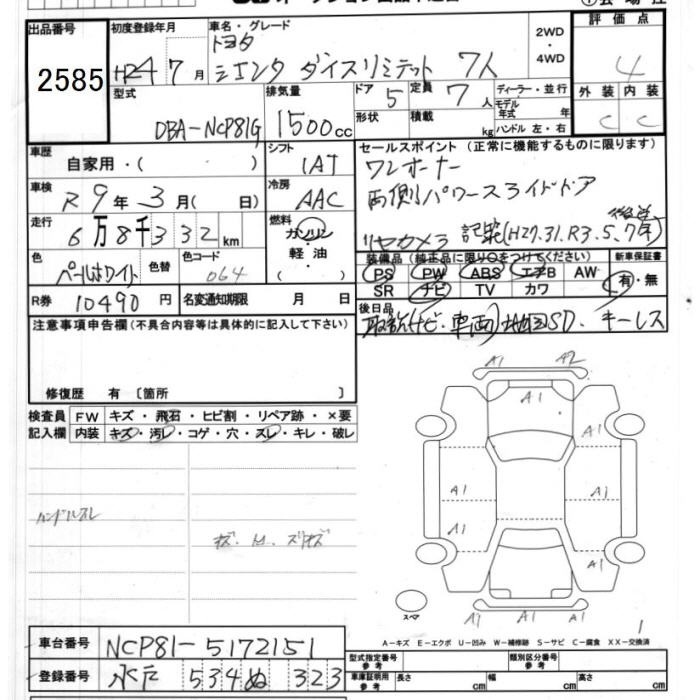 出品番号
2585
初度登録年月
H24 7月
車名・グレード
トヨタ
シエンタ ダイスリミテッド 7人
2WD
・
4WD
評価点
4
外装 内装
C C
型式
DBA-NCP81G
排気量
1500cc
ドア 5
定員 7人
形状
積載 kg
ディーラー・並行
モデル年式 年
ハンドル 左・右
車歴
自家用・( )
シフト
IAT
セールスポイント(正常に機能するものに限ります)
ワンオーナー
両側パワースライドドア
リヤカメラ 記録(H27.31.R3.5.7年)
車検
R9年3月( 日)
冷房
AAC
走行
6万8千332km
燃料
ガソリン
・
軽油
( )
色
パールホワイト
色替
色コード
064
装備品(純正品に限り○をつけてください)
PS PW ABS エアB AW
SR ナビ TV カワ
新車保証書
有・無
R券 10490円
名変通知期限 月 日
後日品
取説(ナビ・車両)地図SD.キーレス
注意事項申告欄(不具合内容等は具体的に記入して下さい)
修復歴 有〔箇所 〕
検査員
記入欄
FW キズ・飛石・ヒビ割・リペア跡・×要
内装 キズ・汚レ・コゲ・穴・スレ・キレ・破レ
ハンドルスレ
A1 A2
A1
A1
A1 A1
A1 A1
A1 A1
A1 A1
スペア
1
A-キズ E-エクボ U-凹み W-補修跡 S-サビ C-腐食 XX-交換済
車台番号 NCP81-5172151
登録番号 水戸 534 ぬ 323
型式指定番号
参考
類別区分番号
参考
車庫証明用
参考
長さ cm 幅 cm 高さ cm